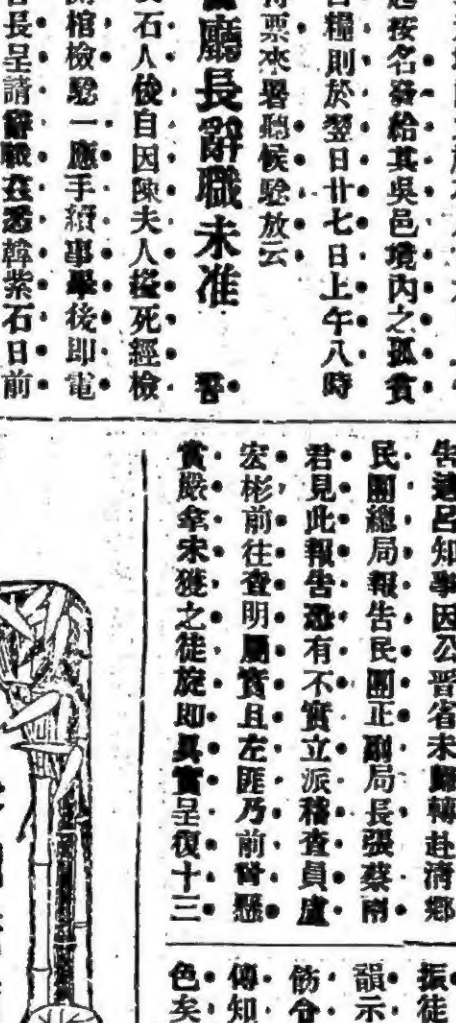 起按名發給其吳邑境內之孤貧
口糧則於翌日廿七日上午八時
票來署聽候驗放云
廳長辭職未准 警
石人俊自因陳夫人縊死經檢
棺檢驗一應手續事畢後即電
長呈請辭職茲悉韓紫石日前
呂知事因公晉省未歸轉赴清鄉
民團總局報告民團正副局長張蔡兩
君見此報告恐有不實立派稽查員盧
宏彬前往查明屬實且左匪乃前曾懸
賞嚴拿未獲之徒旋即具實呈復十三
振徒
韻示
飭令
傳知
色矣